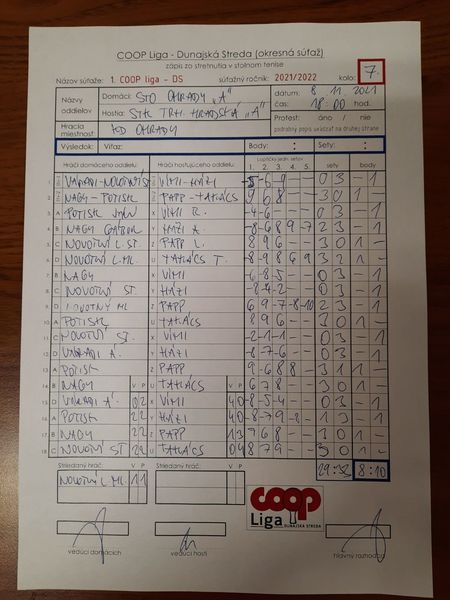 COOP Liga - Dunajská Streda (okresná súťaž)
zápis zo stretnutia v stolnom tenise
Názov súťaže: 1. COOP liga - DS súťažný ročník: 2021/2022 kolo: 7.
Názov oddielov Domáci: STO OHRADY "A" dátum: 8. 11. 2021
Hostia: STK TRH. HRADSKÁ "A" čas: 18:00 hod.
Hracia miestnosť KD OHRADY Protest: áno / nie
podrobný popis uviesť na druhej strane
Výsledok: Víťaz: Body: : Sety: :
Hráči domáceho oddielu Hráči hosťujúceho oddielu Loptičky jedn. setov 1. 2. 3. 4. 5. sety body
1. VIMI-HÁZI -5 -6 -9 - - 0 3 - 1
2. NAGY - POTISK PAPP - TAKÁCS 9 6 8 - - 3 0 1 -
3. A POTISK X VIMI R. 0 3 - 1
4. B NAGY GÁBOR Y HÁZI A. -8 -6 8 9 -7 2 3 - 1
5. C NOVOTNÝ L. ST. Z PAPP L. 8 9 6 - - 3 0 1 -
6. D NOVOTNÝ L. ML. U TAKÁCS T. -8 -9 8 6 9 3 2 1 -
7. B NAGY X VIMI -6 -8 -5 - - 0 3 - 1
8. C NOVOTNÝ ST. Y HÁZI -8 -4 -2 - - 0 3 - 1
9. D NOVOTNÝ ML Z PAPP 6 9 -7 -8 -10 2 3 - 1
10. A POTISK U TAKÁCS 8 9 6 - - 3 0 1 -
11. C NOVOTNÝ ST. X VIMI -2 -1 -1 - - 0 3 - 1
12. D VÁRADI Á. Y HÁZI -8 -7 -6 - - 0 3 - 1
13. A POTISK Z PAPP -9 6 8 8 - 3 1 1 -
14. B NAGY V P U TAKÁCS V P 6 7 8 - - 3 0 1 -
15. D VÁRADI Á. 0 2 X VIMI 4 0 -8 -5 -4 - - 0 3 - 1
16. A POTISK 2 2 Y HÁZI 4 0 -8 -7 9 -8 - 1 3 - 1
17. B NAGY 2 2 Z PAPP 1 3 7 6 8 - - 3 0 1 -
18. C NOVOTNÝ ST 2 2 U TAKÁCS 0 4 8 7 9 - - 3 0 1 -
Striedaný hráč: V P Striedaný hráč: V P 29:33 8:10
NOVOTNÝ L. ML 1 1
coop
Liga
DUNAJSKÁ STREDA
vedúci domácich vedúci hostí hlavný rozhodca